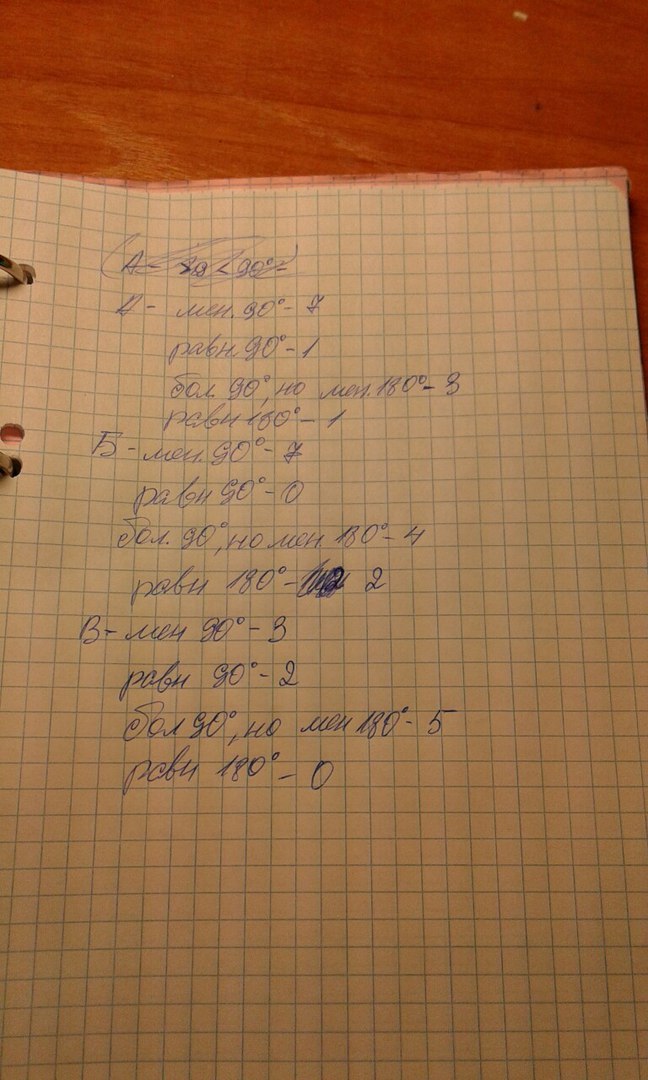 (А - < 90°-)
А - мен. 90° - 7
равн. 90° - 1
бол. 90°, но мен. 180° - 3
равн 180° - 1
Б - мен. 90° - 7
равн 90° - 0
бол. 90°, но мен. 180° - 4
равн 180° - 2
В - мен 90° - 3
равн 90° - 2
бол 90°, но мен 180° - 5
равн 180° - 0